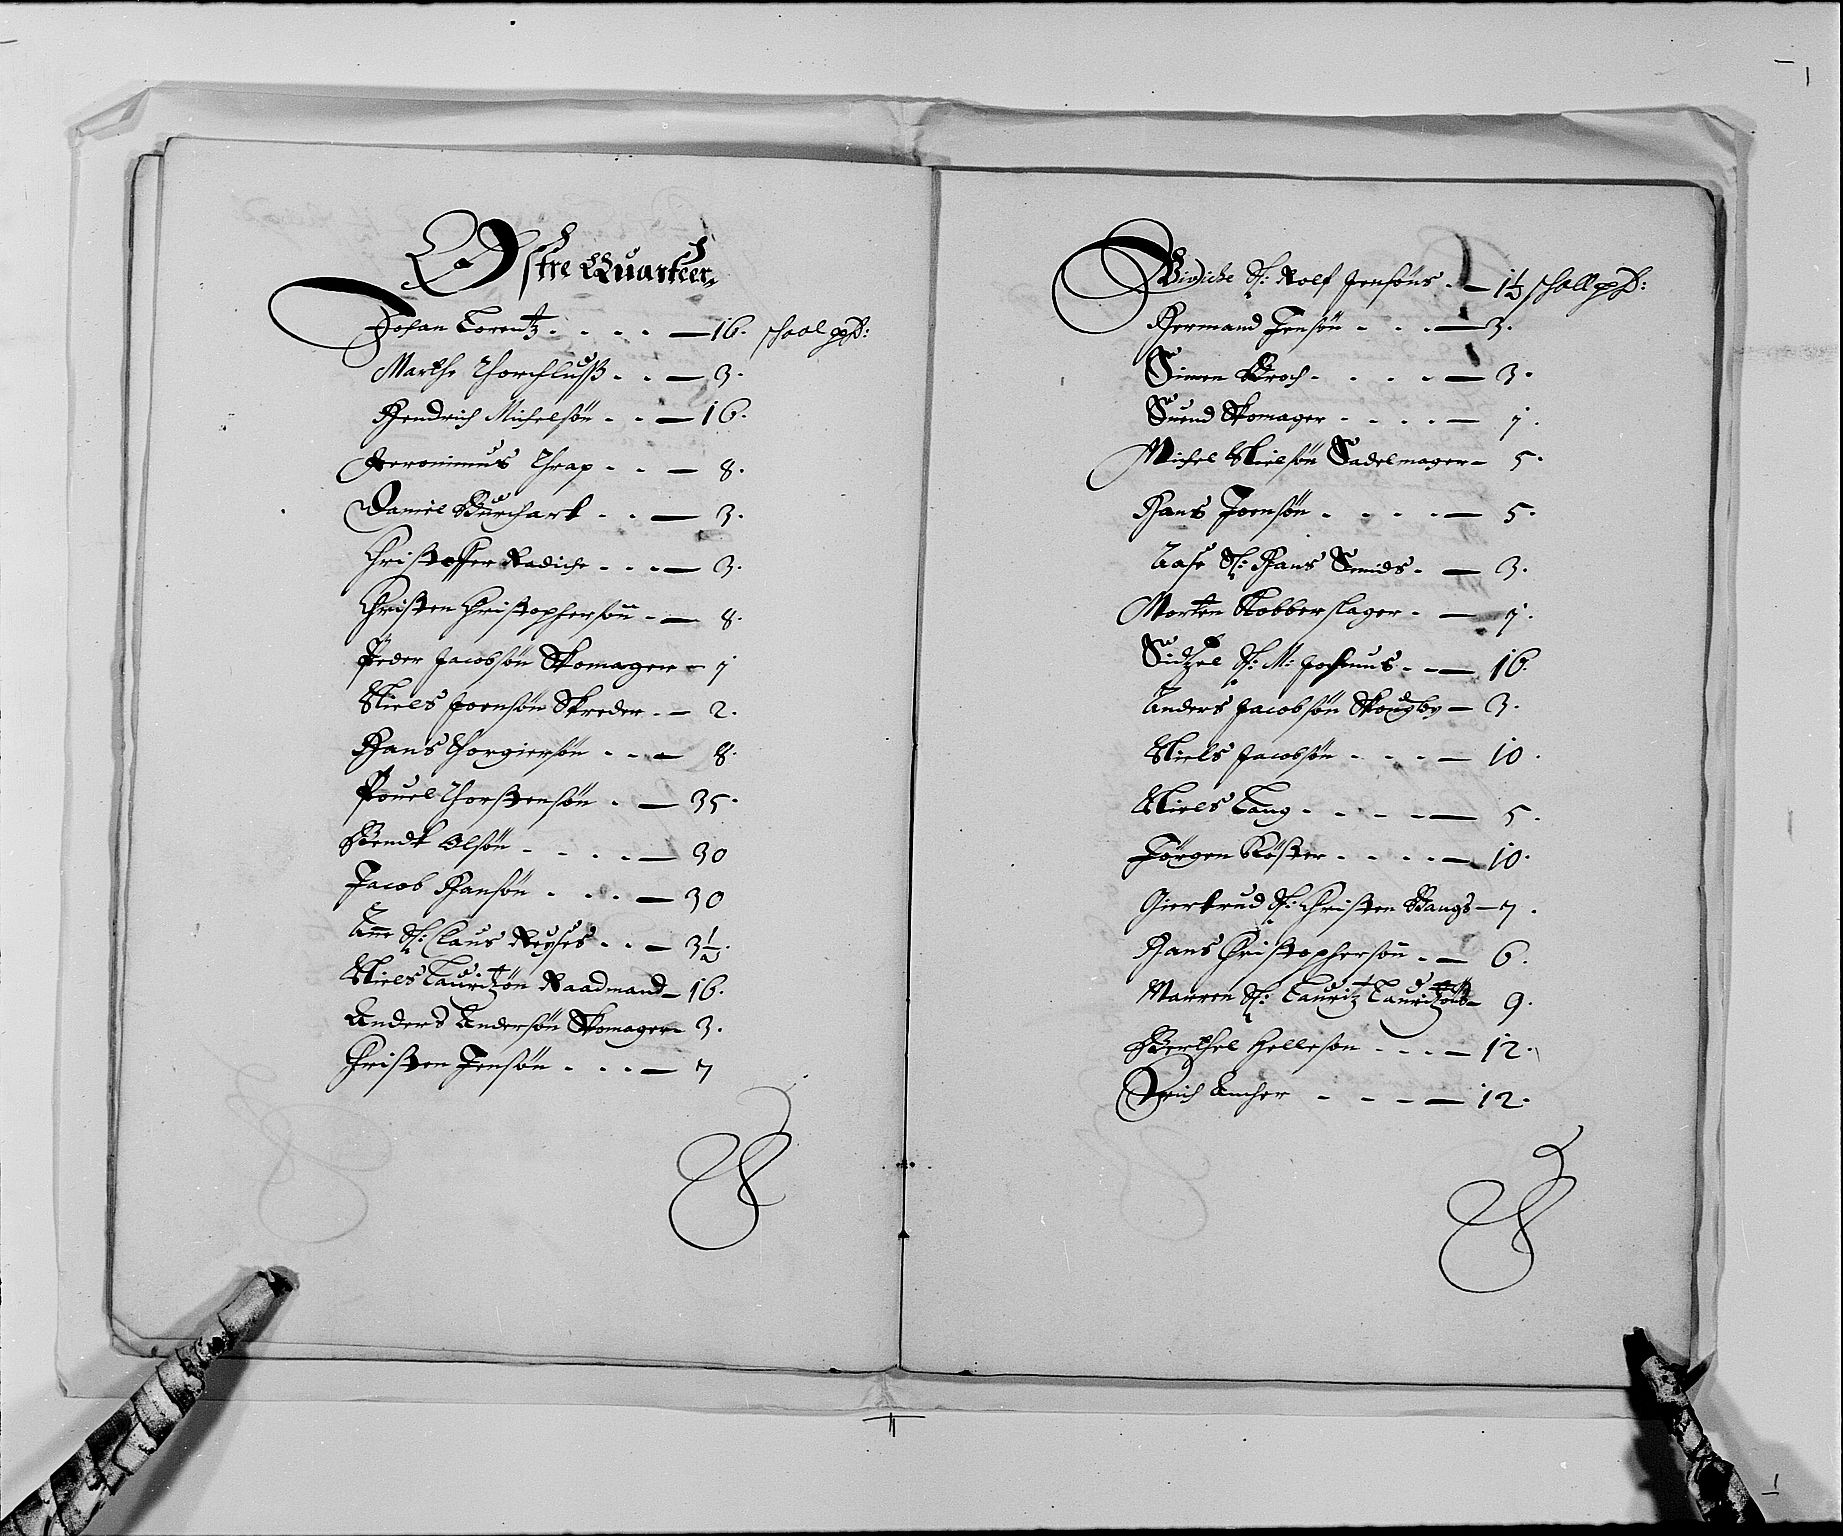 Østre Quarteer,
Johan Lorentz - - - - 16. schaal pp:
Marthe Thorchlusß - - 3.
Hendrich Michelsøn - - 16.
Jeronimus Thrap - - 8.
Daniel Burchart - - 3.
Christoffer Radiche - - - 3.
Christen Christophersøn - 8.
Peder Jacobsøn Skomager - 7
Niels Joensøn Skreder - 2.
Hans Thorgiersøn - - - 8.
Pouel Thorstensøn - 35.
Bendt Olsøn - - - - 30
Jacob Hansøn - - - 30
Anne Sl: Claus Reyses - - 3½.
Niels Lauritzøn Raadmand - 16.
Anders Andersøn Skomager - 3.
Christen Jensøn - - - 7
Sl: Rolf Jensøns - 1½ schaall pp:
Hermand Jensøn - - - 3.
Simen Kroch - - - - 3.
Suend Skomager - - - - 7.
Michel Nielsøn Sadelmager - 5.
Hans Joensøn - - - - 5.
Aase Sl: Hans Smids - 3.
Morten Kobberslager - 7.
Sidzel Sl: M: Jochumus - - 16.
Anders Jacobsøn Skougby - 3.
Niels Jacobsøn - - - 10.
Niels Lang - - - - 5.
Jørgen Køster - - - - 10.
Giertrud Sl: Christen Bangs - 7.
Hans Christophersøn - 6.
Marren Sl: Lauritz Lauritzøns - 9.
Berthel Hellesøn - - - 12.
Erich Ancher - - - 12.